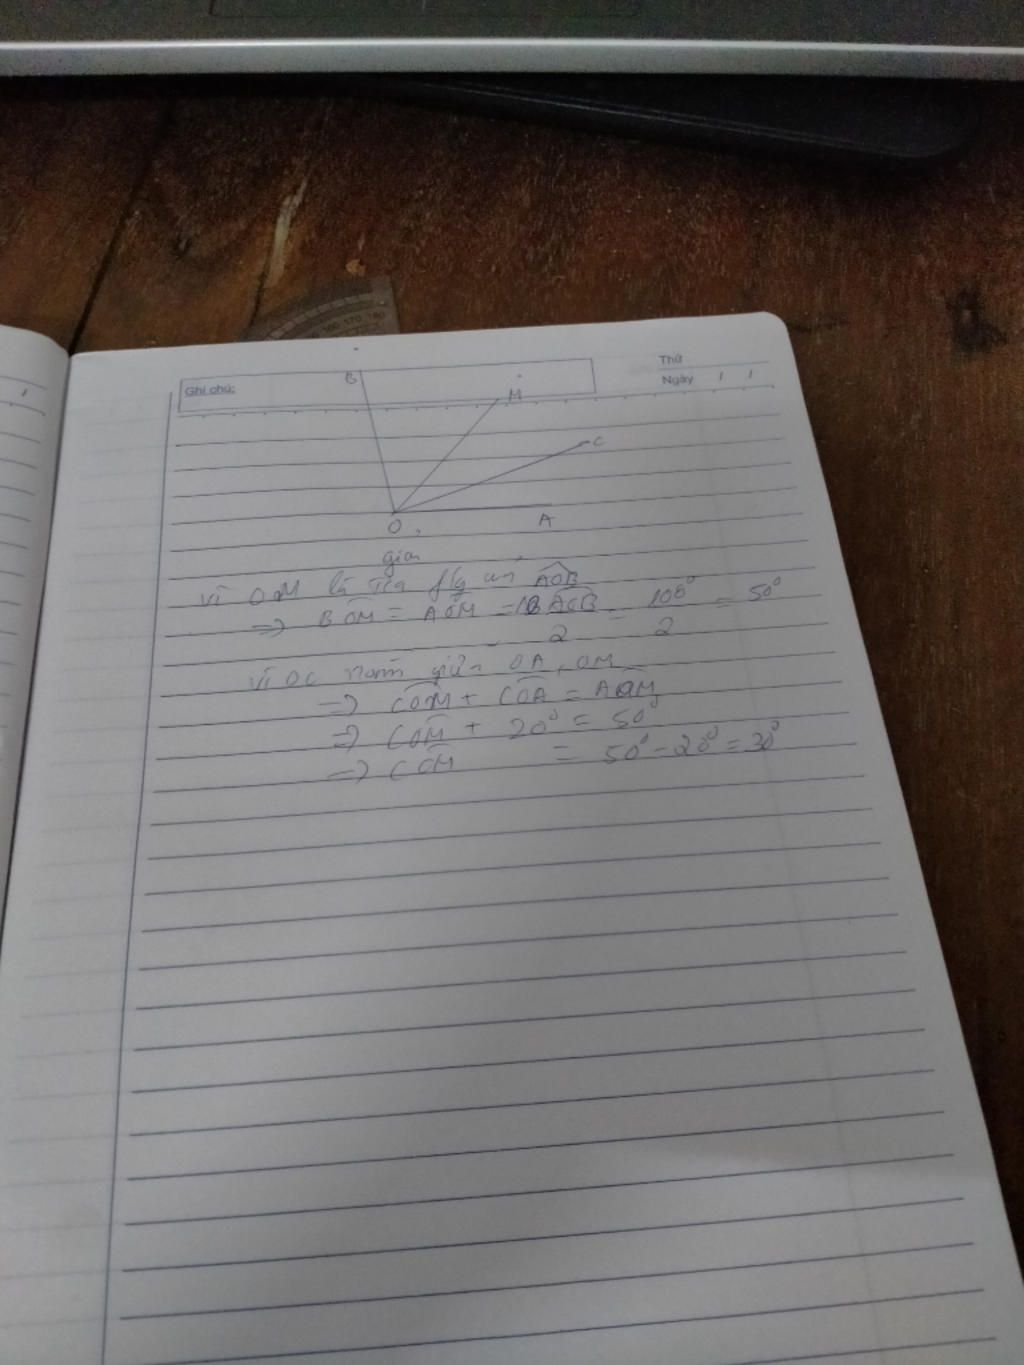 100 170 180
Ghi chú:
Thứ
Ngày / /
B
M
C
O
A
gian
Vì OM là tia p/g của AOB
=> BOM = AOM = AOB/2 = 100°/2 = 50°
Vì OC nằm giữa OA, OM
=> COM + COA = AOM
=> COM + 20° = 50°
=> COM = 50° - 20° = 30°